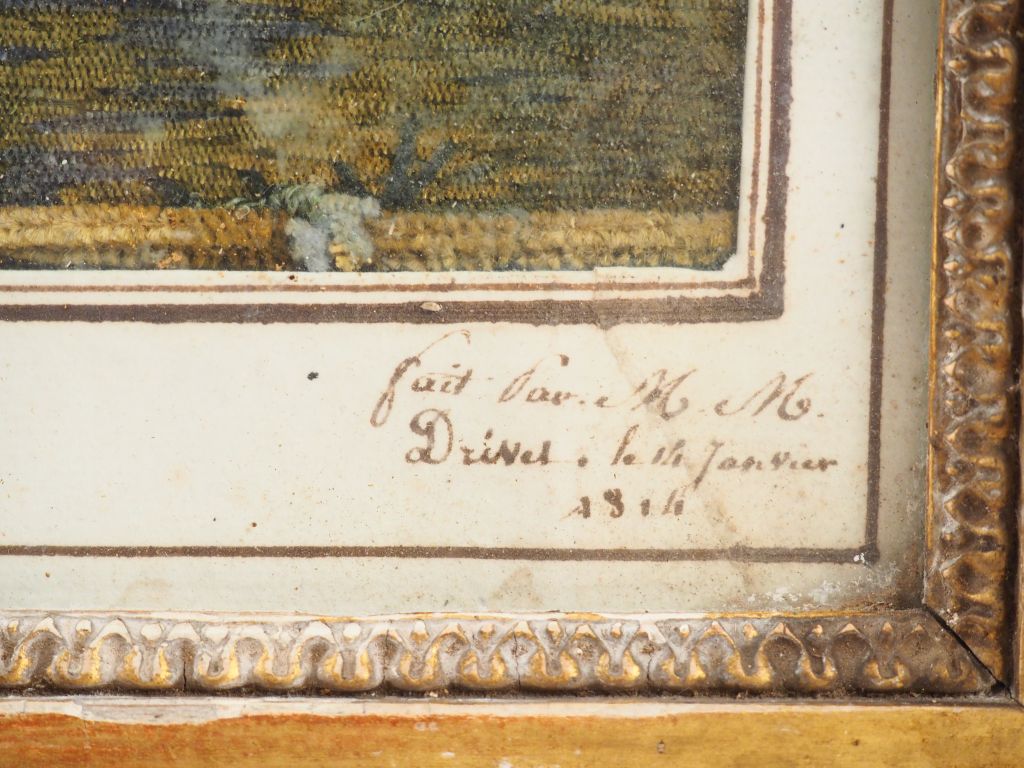 fait Par. M. M.
Drivet. le 14 Janvier
1814